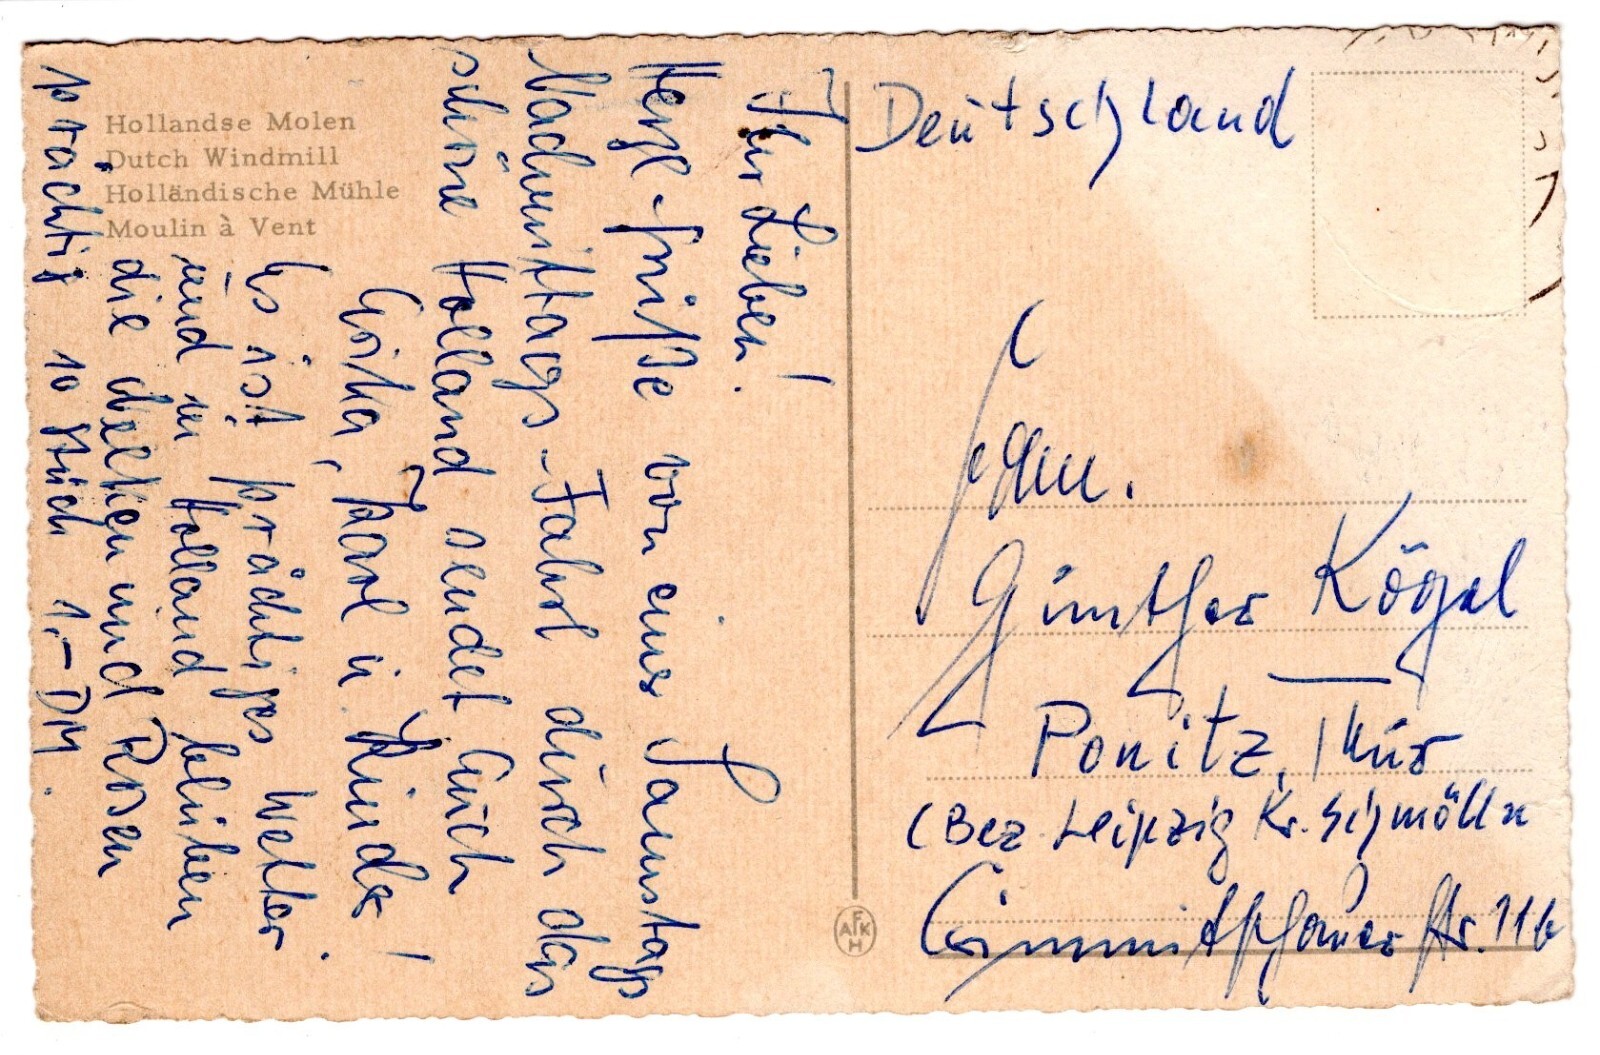 Hollandse Molen
Dutch Windmill
Holländische Mühle
Moulin à Vent
Ihr Lieben!
Herzl. Grüße von einer Samstags
Nachmittags-Fahrt durch das
schöne Holland sendet Euch
Karl u. Kinder!
Es ist prächtiges Wetter.
und in Holland blühen
die Nelken und Rosen
prächtig 10 Stück 1,- DM.
Deutschland
Fam.
Günther Kögel
Ponitz, Thür
(Bez. Leipzig Kr. Schmölln
Crimmitschauer Str. 11b
AFKH